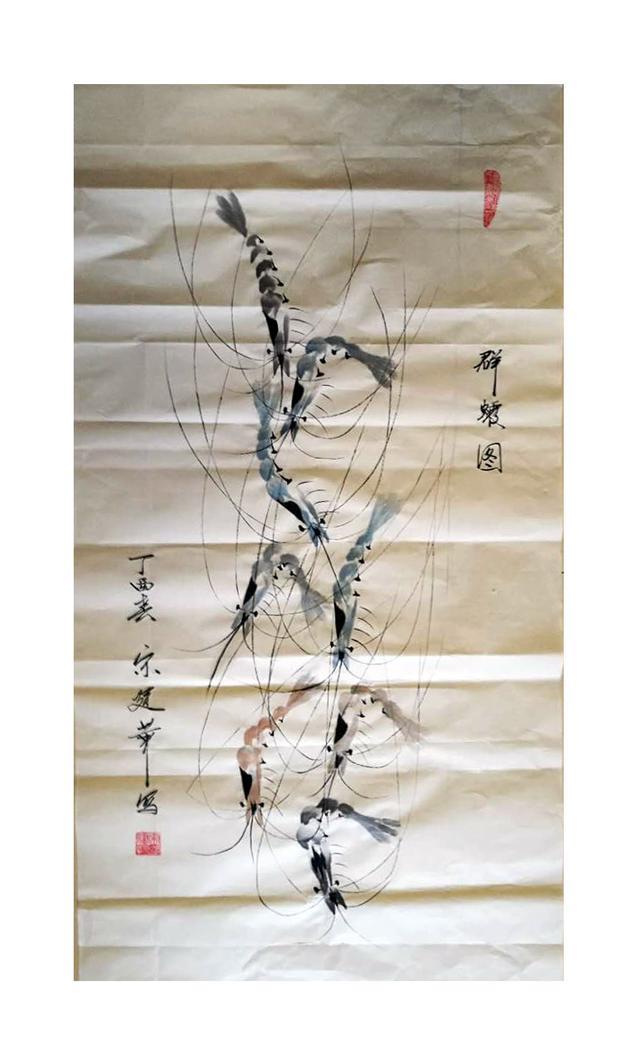 群蝦图
丁酉春 宋華写